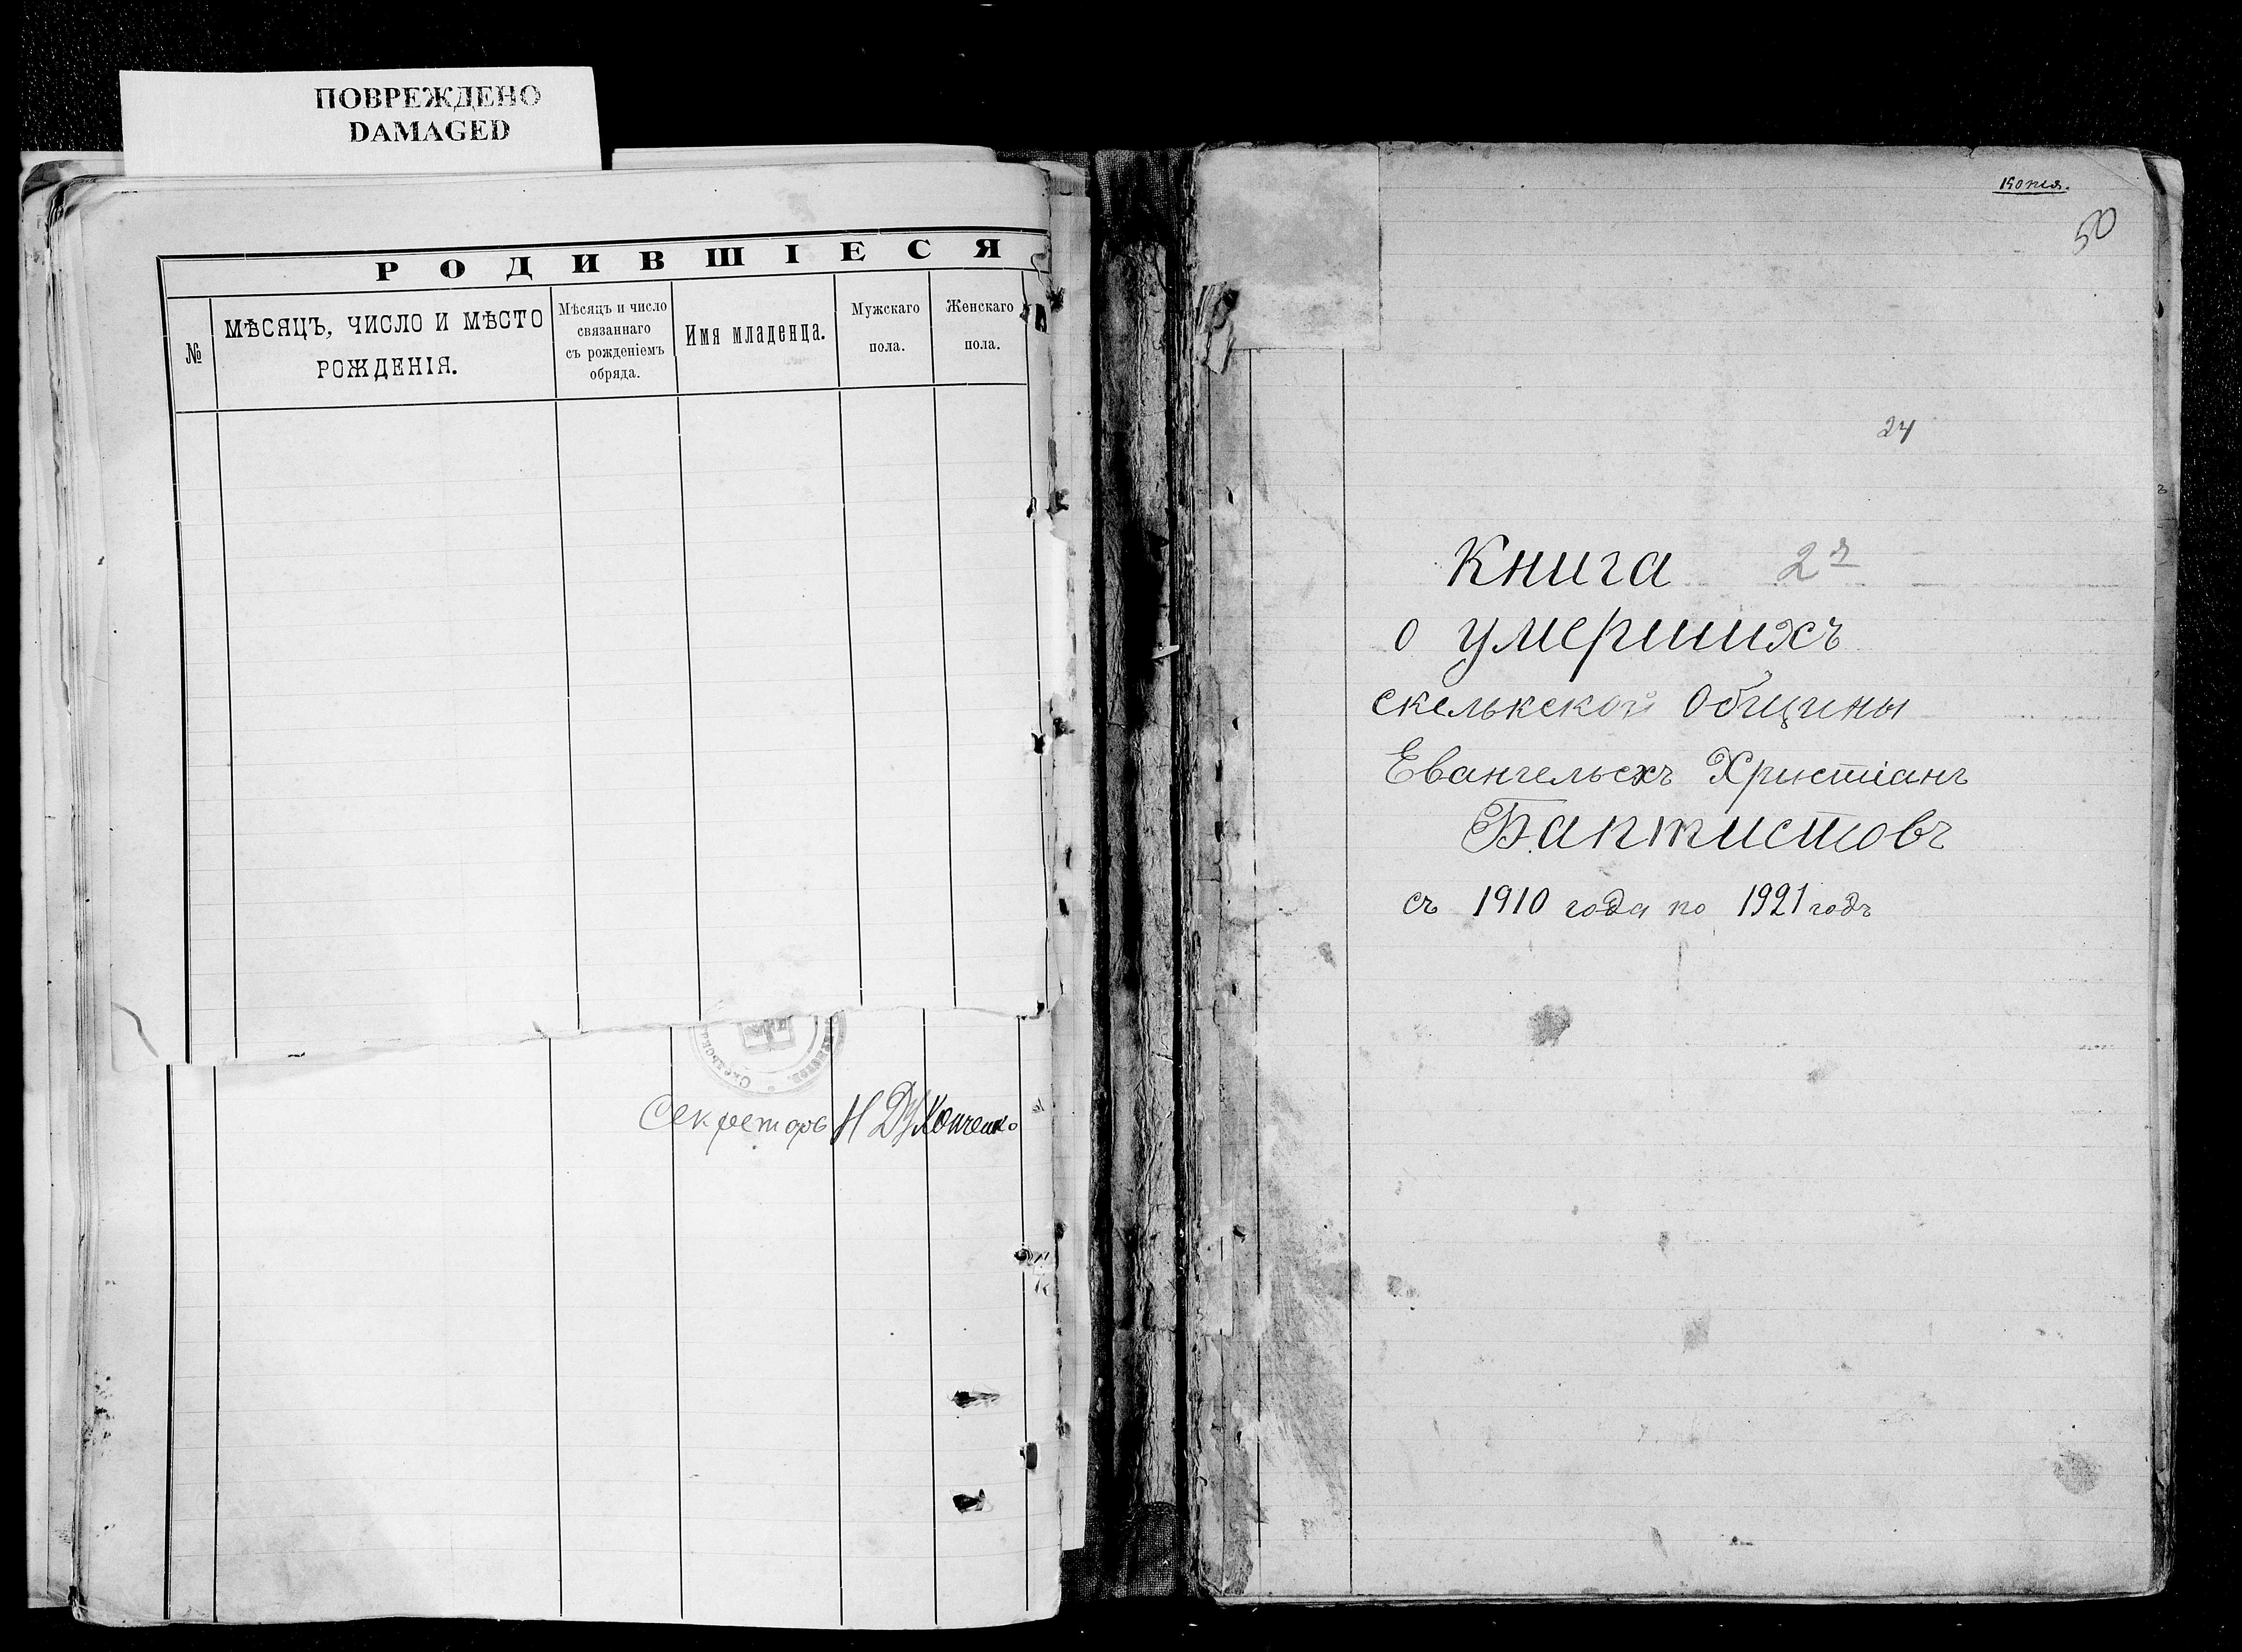 ПОВРЕЖДЕНО
DAMAGED
РОДИВШІЕСЯ
№
МѢСЯЦЪ, ЧИСЛО И МѢСТО
РОЖДЕНІЯ.
Мѣсяцъ и число
связаннаго
съ рожденіемъ
обряда.
Имя младенца.
Мужскаго
пола.
Женскаго
пола.
Секретарь Н
Копія.
50
24
Книга 2я
о умершихъ
скелькской Общины
Евангельскхъ Христіанъ
Баптистовъ
съ 1910 года по 1921 годъ